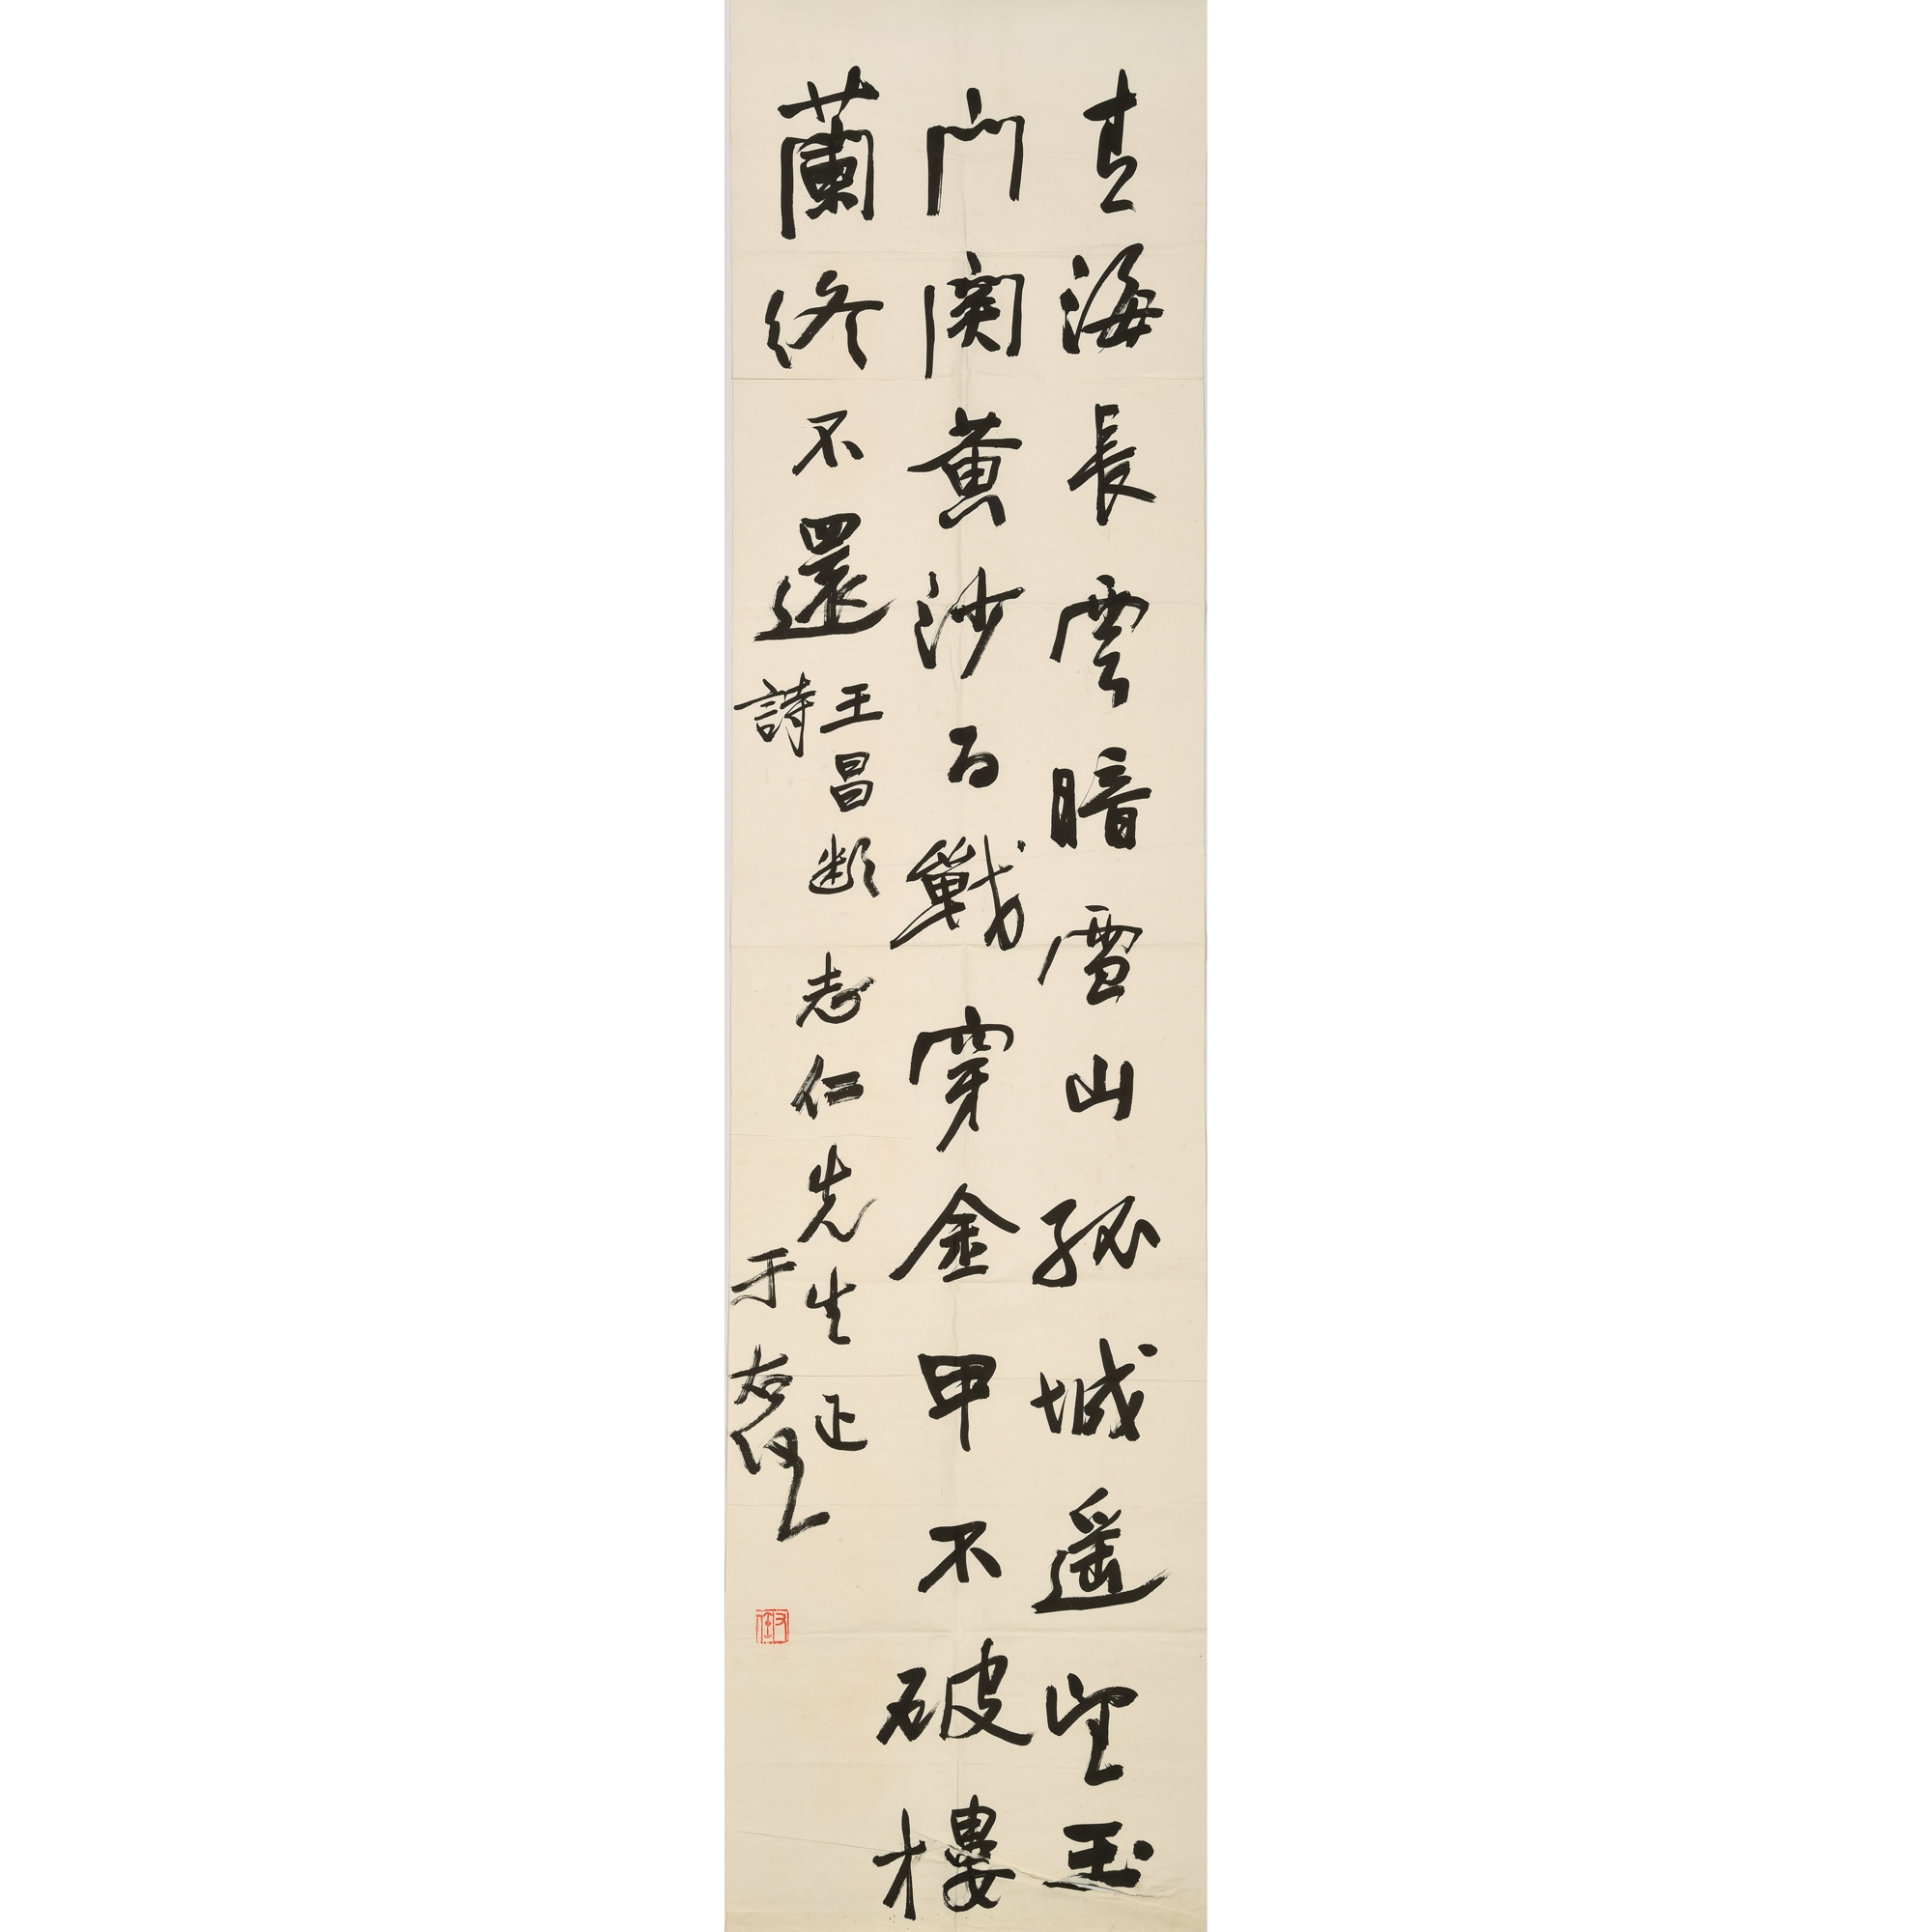 青海長雲暗雪山孤城遥望玉
門関黄沙百戰穿金甲不破樓
蘭終不還
王昌齡
詩
志仁先生正
于右任
右任